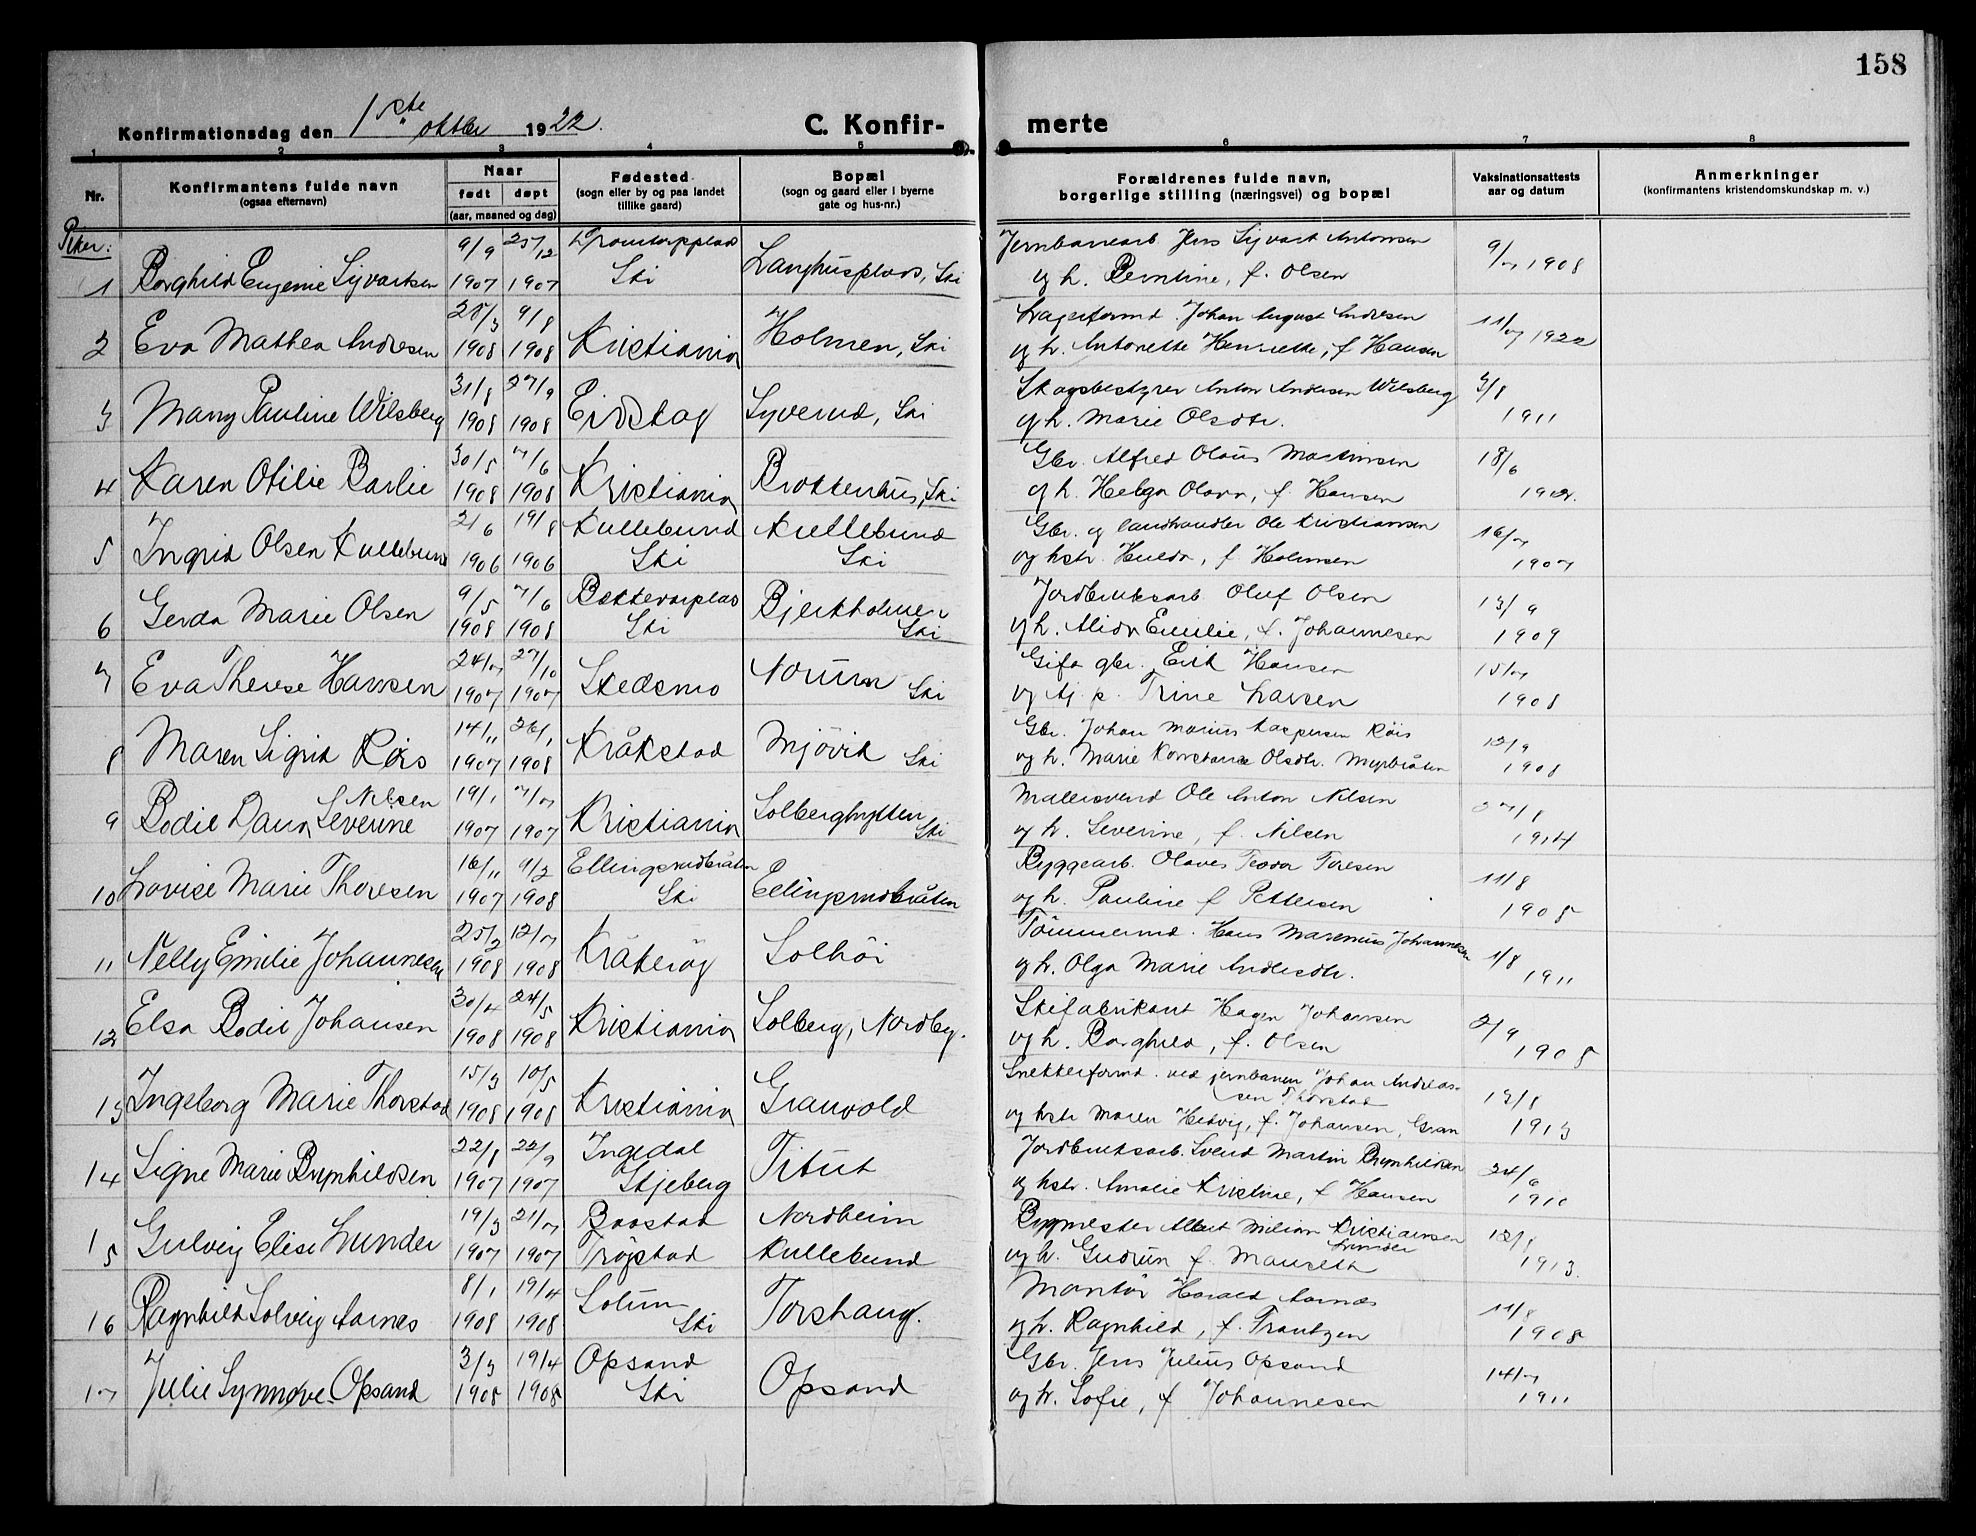 158
Konfirmationsdag den 1ste oktbr 1922.
C. Konfir-
merte
1 2 3 4 5 6 7 8
Nr.
Konfirmantens fulde navn
(ogsaa efternavn)
Naar
født døpt
(aar, maaned og dag)
Fødested
(sogn eller by og paa landet
tillike gaard)
Bopæl
(sogn og gaard eller i byerne
gate og hus-nr.)
Forældrenes fulde navn,
borgerlige stilling (næringsvei) og bopæl
Vaksinationsattests
aar og datum
Anmerkninger
(konfirmantens kristendomskundskap m. v.)
Piker:
1 Borghild Eugenie Syvartsen 9/9 1907 25/12 1907 Ski Langhusplads, Ski
Jernbanearb. Jens Syvart Antonsen 9/7 1908
og h. Berntine, f. Olsen
2 Eva Mathea Andresen 28/3 1908 9/8 1908 Kristiania Holmen, Ski
Lagerformd. Johan August Andresen 11/7 1922
og h. Antonette Henriette, f. Hansen
3 Mary Pauline Wilsberg 31/8 1908 27/9 1908 Eidskog Syverud, Ski
Skogsbestyrer Anton Andersen Wilsberg 3/8 1911
og h. Marie Olsdtr.
4 Karen Otilie Barlie 30/5 1908 7/6 1908 Kristiania Brottenhus, Ski
Gbr. Alfred Olaus Martinsen 18/6 1912.
og h. Helga Olava, f. Hansen
5 Ingrid Olsen Kullebund 2/6 1906 19/8 1906 Kullebund Ski Kullebund Ski
Gbr. og landhandler Ole Kristiansen 16/7 1907
og hstr. Hulda, f. Holmsen
6 Gerda Marie Olsen 9/5 1908 7/6 1908 Ski Bjerkholmen Ski
Jordbruksarb. Oluf Olsen 13/9 1909
og h. Alida Emilie, f. Johannesen
7 Eva Therese Hansen 24/7 1907 27/10 1907 Skedsmo Norum Ski
Gifo gbr. Erik Hansen 15/7 1908
og tj. p. Trine Larsen
8 Maren Sigrid Röis 14/11 1907 26/1 1908 Kråkstad Mjövik Ski
Gbr. Johan Marius Kaspersen Röis 12/9 1908
og h. Marie Konstanse Olsdtr. Myrbråten
9 Bodil Dana Severine Nilsen 19/1 1907 7/7 1907 Kristiania Solberghytten Ski
Malersvend Ole Anton Nilsen 27/8 1914
og h. Severine, f. Nilsen
10 Lovise Marie Thoresen 16/11 1907 9/2 1908 Ellingsrudbråten Ski Ellingsrudbråten
Byggearb. Olaves Teodor Toresen 11/8 1908
og h. Pauline f. Pettersen
11 Nelly Emilie Johannesen 25/2 1908 12/7 1908 Kråkeröy Solhöi
Tömmermd. Hans Marenius Johannesen 1/8 1911
og h. Olga Marie Andersdtr.
12 Elsa Bodil Johansen 30/4 1908 24/5 1908 Kristiania Solberg, Nordby.
Skifabrikant Hagen Johansen 2/9 1908
og h. Borghild, f. Olsen
13 Ingeborg Marie Thorstad 15/3 1908 10/5 1908 Kristiania Granvold
Snekkerformd. ved jernbanen Johan Andreas-
sen Thorstad 13/8 1913
og hstr. Maren Hedvig, f. Johansen, Gran
14 Signe Marie Brynhildsen 22/8 1907 22/9 1907 Ingedal Skjeberg Titut
Jordbruksarb. Svend Martin Brynhildsen 24/6 1910
og hstr. Amalie Kristine, f. Hansen
15 Gulveig Elise Lunder 19/3 1907 21/7 1907 Baastad Tröystad Nordheim Kullebund
Bygmester Albert Milian Kristiansen Lunder 12/8 1913.
og h. Gudrun f. Mauseth
16 Ragnhild Solveig Aarnes 8/1 1908 19/4 1908 Solum Ski Torshaug.
Montör Harald Aarnæs 11/8 1908
og h. Ragnhild, f. Frantzen
17 Julie Synnøve Opsand 3/3 1908 19/4 1908 Opsand Ski Opsand
Gbr. Jens Julius Opsand 14/7 1911
og h. Sofie, f. Johannesen